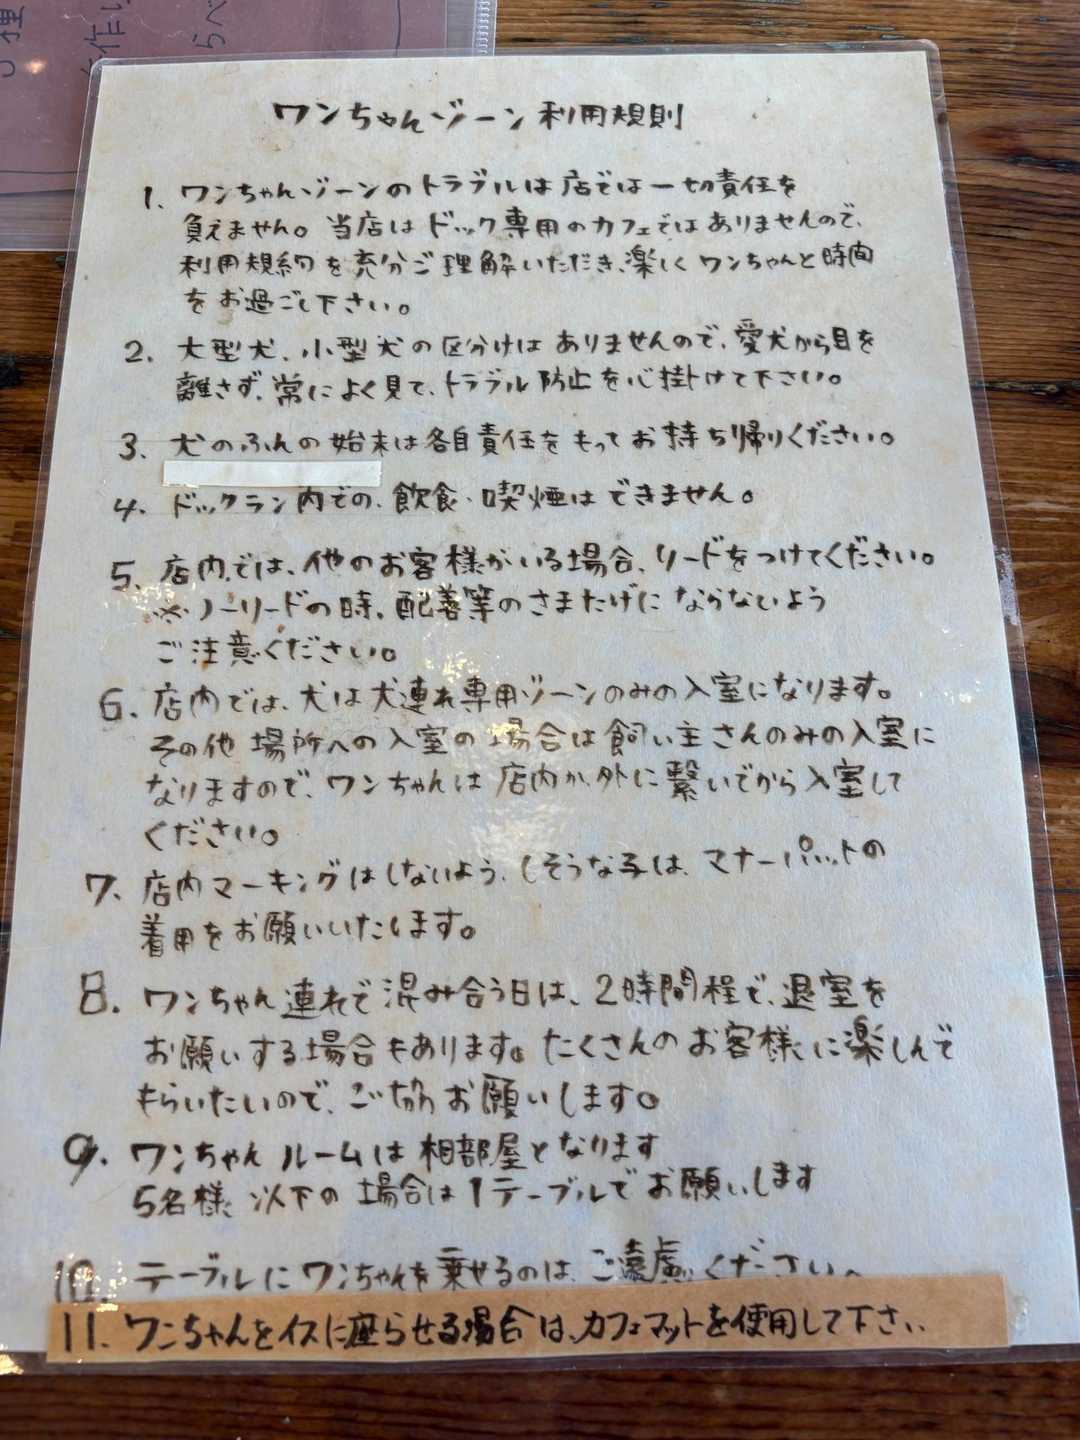 ワンちゃんゾーン利用規則
1. ワンちゃんゾーンのトラブルは店では一切責任を
負えません。当店はドック専用のカフェではありませんので、
利用規約を充分ご理解いただき、楽しくワンちゃんと時間
をお過ごし下さい。
2. 大型犬、小型犬の区分けはありませんので、愛犬から目を
離さず、常によく見て、トラブル防止を心掛けて下さい。
3. 犬のふんの始末は各自責任をもってお持ち帰りください。
4. ドックラン内での、飲食、喫煙はできません。
5. 店内では、他のお客様がいる場合、リードをつけてください。
※ノーリードの時、配善等のさまたげにならないよう
ご注意ください。
6. 店内では、犬は犬連れ専用ゾーンのみの入室になります。
その他場所への入室の場合は飼い主さんのみの入室に
なりますので、ワンちゃんは店内か外に繋いでから入室して
ください。
7. 店内マーキングはしないよう、しそうな子は、マナーパットの
着用をお願いいたします。
8. ワンちゃん連れで混み合う日は、2時間程で、退室を
お願いする場合もあります。たくさんのお客様に楽しんで
もらいたいので、ご協力お願いします。
9. ワンちゃんルームは相部屋となります
5名様以下の場合は1テーブルでお願いします
10. テーブルにワンちゃんを乗せるのは、ご遠慮ください。
11. ワンちゃんをイスに座らせる場合は、カフェマットを使用して下さい